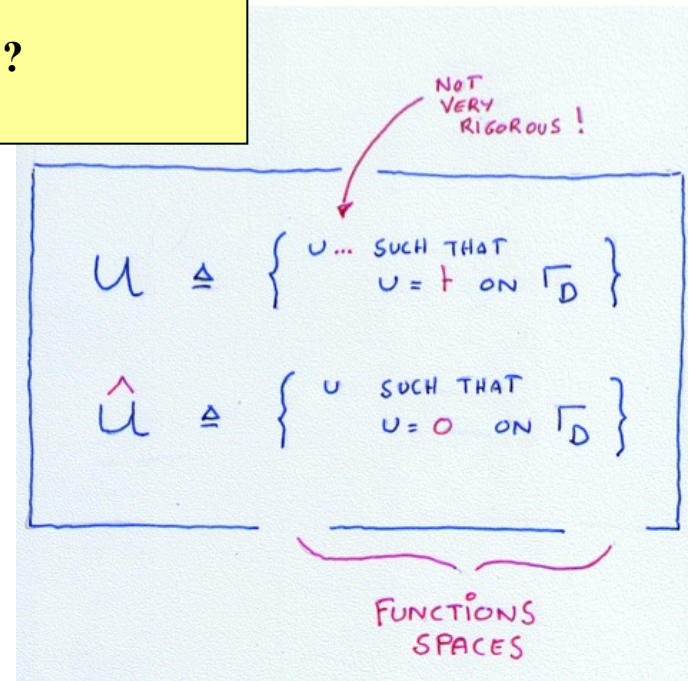 ?
NOT
VERY
RIGOROUS !
U ≜ { U... SUCH THAT
U = t ON Γ_D }
Û ≜ { U SUCH THAT
U = 0 ON Γ_D }
FUNCTIONS
SPACES